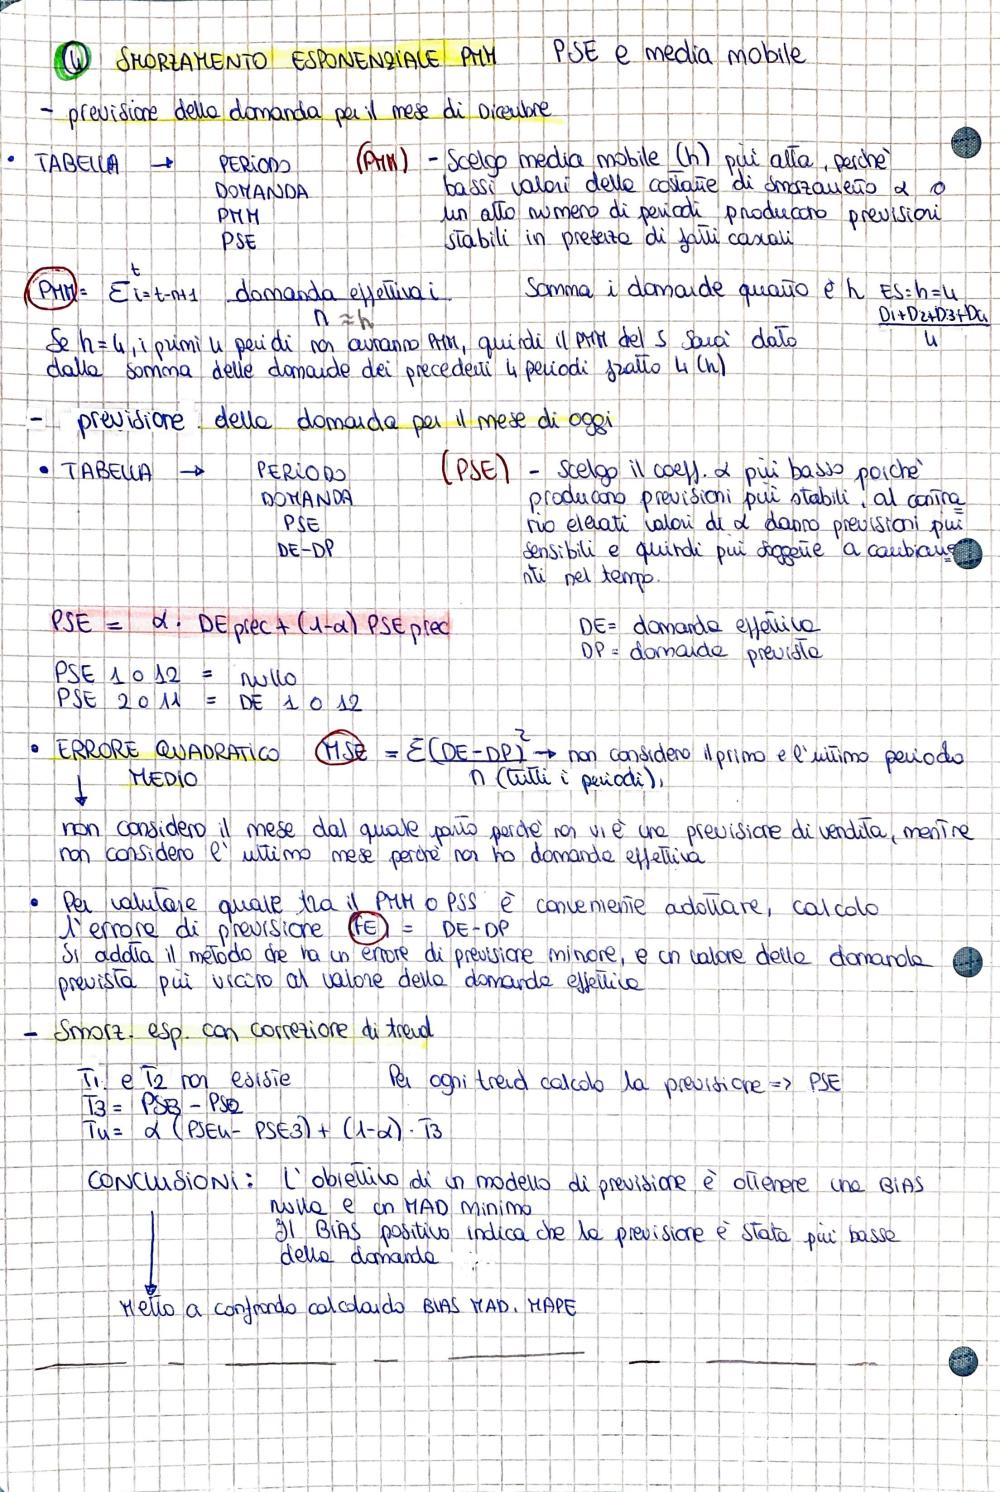 4 SMORZAMENTO ESPONENZIALE PMM PSE e media mobile
- previsione della domanda per il mese di Dicembre
• TABELLA → PERIODO (PMM) - Scelgo media mobile (h) più alta, perchè
DOMANDA bassi valori delle costante di smorzamento α o
PMM un alto numero di periodi producono previsioni
PSE stabili in presenza di fatti casuali
PMM = Σ t i=t-n+1 domanda effettiva i Somma i domande quanto è h ES: h=4
n ≈ h D1+D2+D3+D4
Se h=4, i primi 4 periodi non avranno PMM, quindi il PMM del 5 sarà dato 4
dalla somma delle domande dei precedenti 4 periodi fratto 4 (h)
- previsione della domanda per il mese di oggi
• TABELLA → PERIODO (PSE) - Scelgo il coeff. α più basso poichè
DOMANDA producono previsioni più stabili, al contra
PSE rio elevati valori di α danno previsioni più
DE-DP sensibili e quindi più soggette a cambiame
nti nel tempo.
PSE = α · DE prec + (1-α) PSE prec DE = domanda effettiva
DP = domanda prevista
PSE 1 o 12 = nullo
PSE 2 o 11 = DE 1 o 12
• ERRORE QUADRATICO MSE = Σ(DE-DP)² → non considero il primo e l'ultimo periodo
MEDIO n (tutti i periodi),
↓
non considero il mese dal quale parto perchè non vi è una previsione di vendita, mentre
non considero l'ultimo mese perchè non ho domanda effettiva
• Per valutare quale tra il PMM o PSS è conveniente adottare, calcolo
l'errore di previsione (FE) = DE-DP
Si adotta il metodo che ha un errore di previsione minore, e un valore della domanda
prevista più vicino al valore della domanda effettiva
- Smorz. esp. con correzione di trend
T1 e T2 non esiste Per ogni trend calcolo la previsione => PSE
T3 = PSE3 - PSE2
T4 = α (PSE4 - PSE3) + (1-α) · T3
CONCLUSIONI: L'obiettivo di un modello di previsione è ottenere una BIAS
nulla e un MAD minimo
Il BIAS positivo indica che la previsione è stata più bassa
della domanda
Metto a confronto calcolando BIAS MAD. MAPE